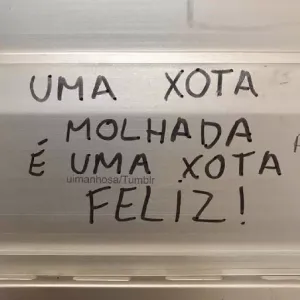 UMA XOTA
MOLHADA
É UMA XOTA
uimanhosa/Tumblr
FELIZ!